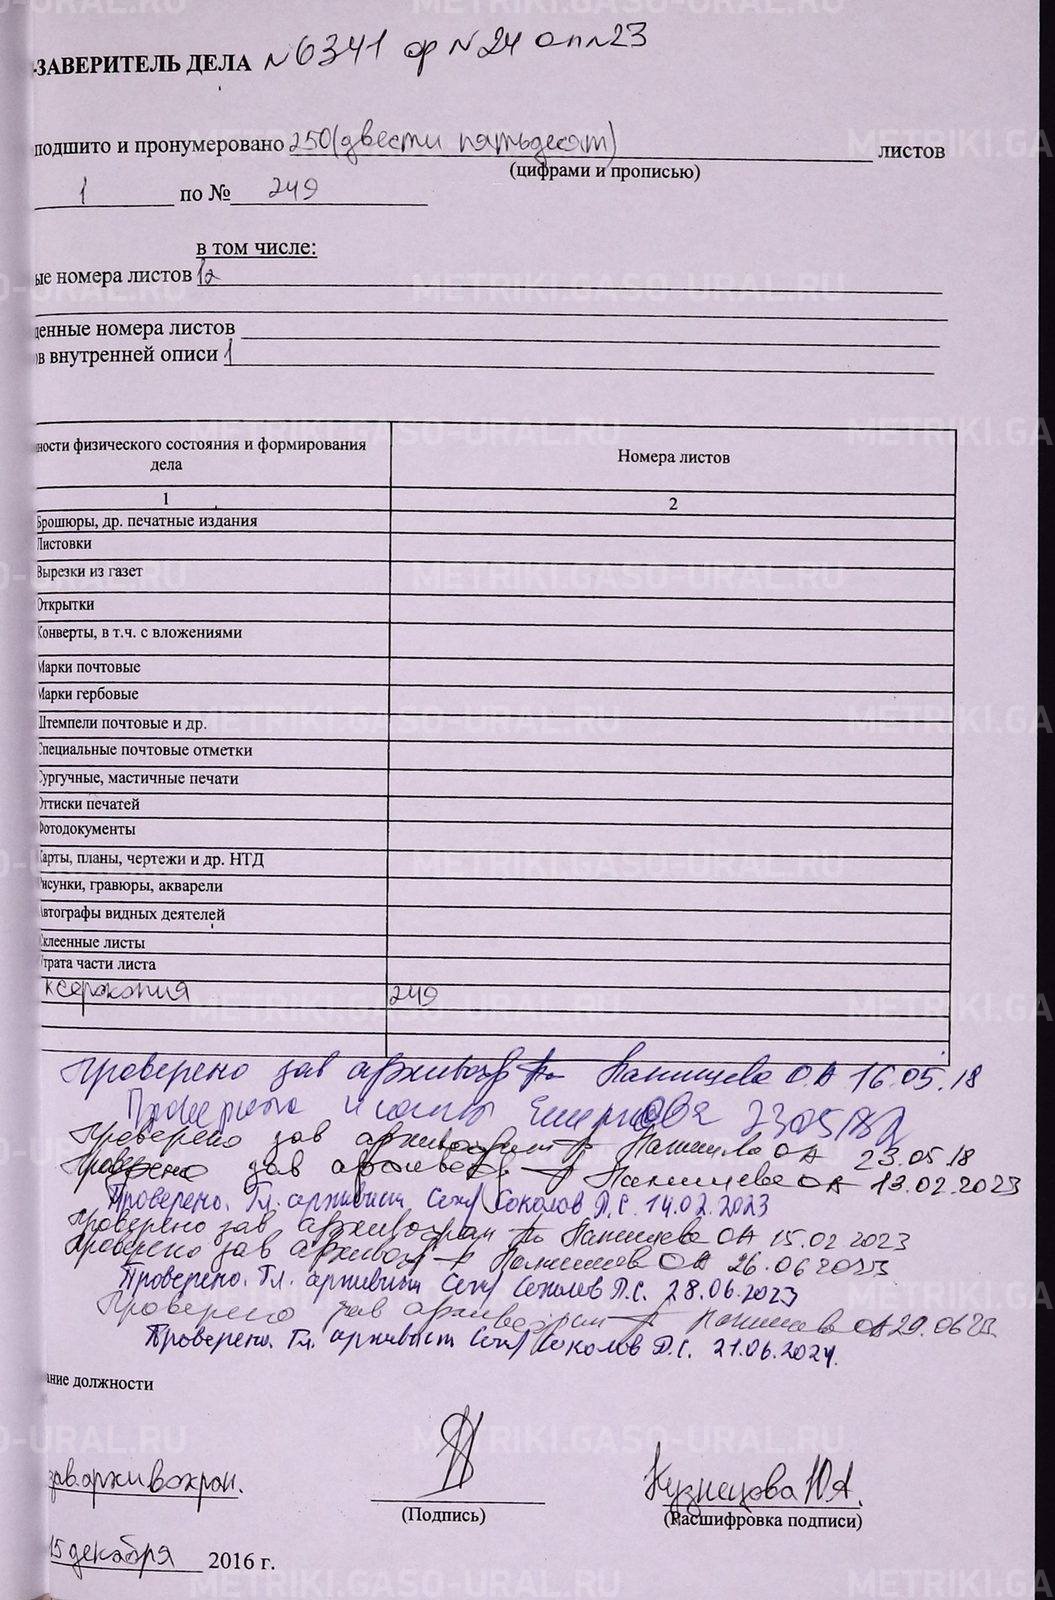 -ЗАВЕРИТЕЛЬ ДЕЛА №6341 ф №24 оп №23
подшито и пронумеровано 250(двести пятьдесят) листов
(цифрами и прописью)
1 по № 249
в том числе:
ые номера листов 1а
щенные номера листов
ов внутренней описи 1
ности физического состояния и формирования дела Номера листов
1 2
Брошюры, др. печатные издания
Листовки
Вырезки из газет
Открытки
Конверты, в т.ч. с вложениями
Марки почтовые
Марки гербовые
Штемпели почтовые и др.
Специальные почтовые отметки
Сургучные, мастичные печати
Оттиски печатей
Фотодокументы
Карты, планы, чертежи и др. НТД
Рисунки, гравюры, акварели
Автографы видных деятелей
Склеенные листы
Утрата части листа
ксерокопия 249
Проверено зав архивохр Паницева О А 16.05.18
Проверено 23 05 18
Проверено зав архивохран Паницева О А 23.05.18
Проверено зав архивохр Паницева О А 13.02.2023
Проверено. Гл. архивист Соколов П.С. 14.02.2023
Проверено зав архивохран Паницева О А 15.02 2023
Проверено зав архивохр Паницева О А 26.06 2023
Проверено. Гл. архивист Соколов П.С. 28.06.2023
Проверено зав архивохран Паницева О А 29.06 23
Проверено. Гл. архивист Соколов П.С. 21.06.2024.
ание должности
зав.архивохран. Кузнецова Ю.А.
(Подпись) (Расшифровка подписи)
15 декабря 2016 г.
METRIKI.GASO-URAL.RU